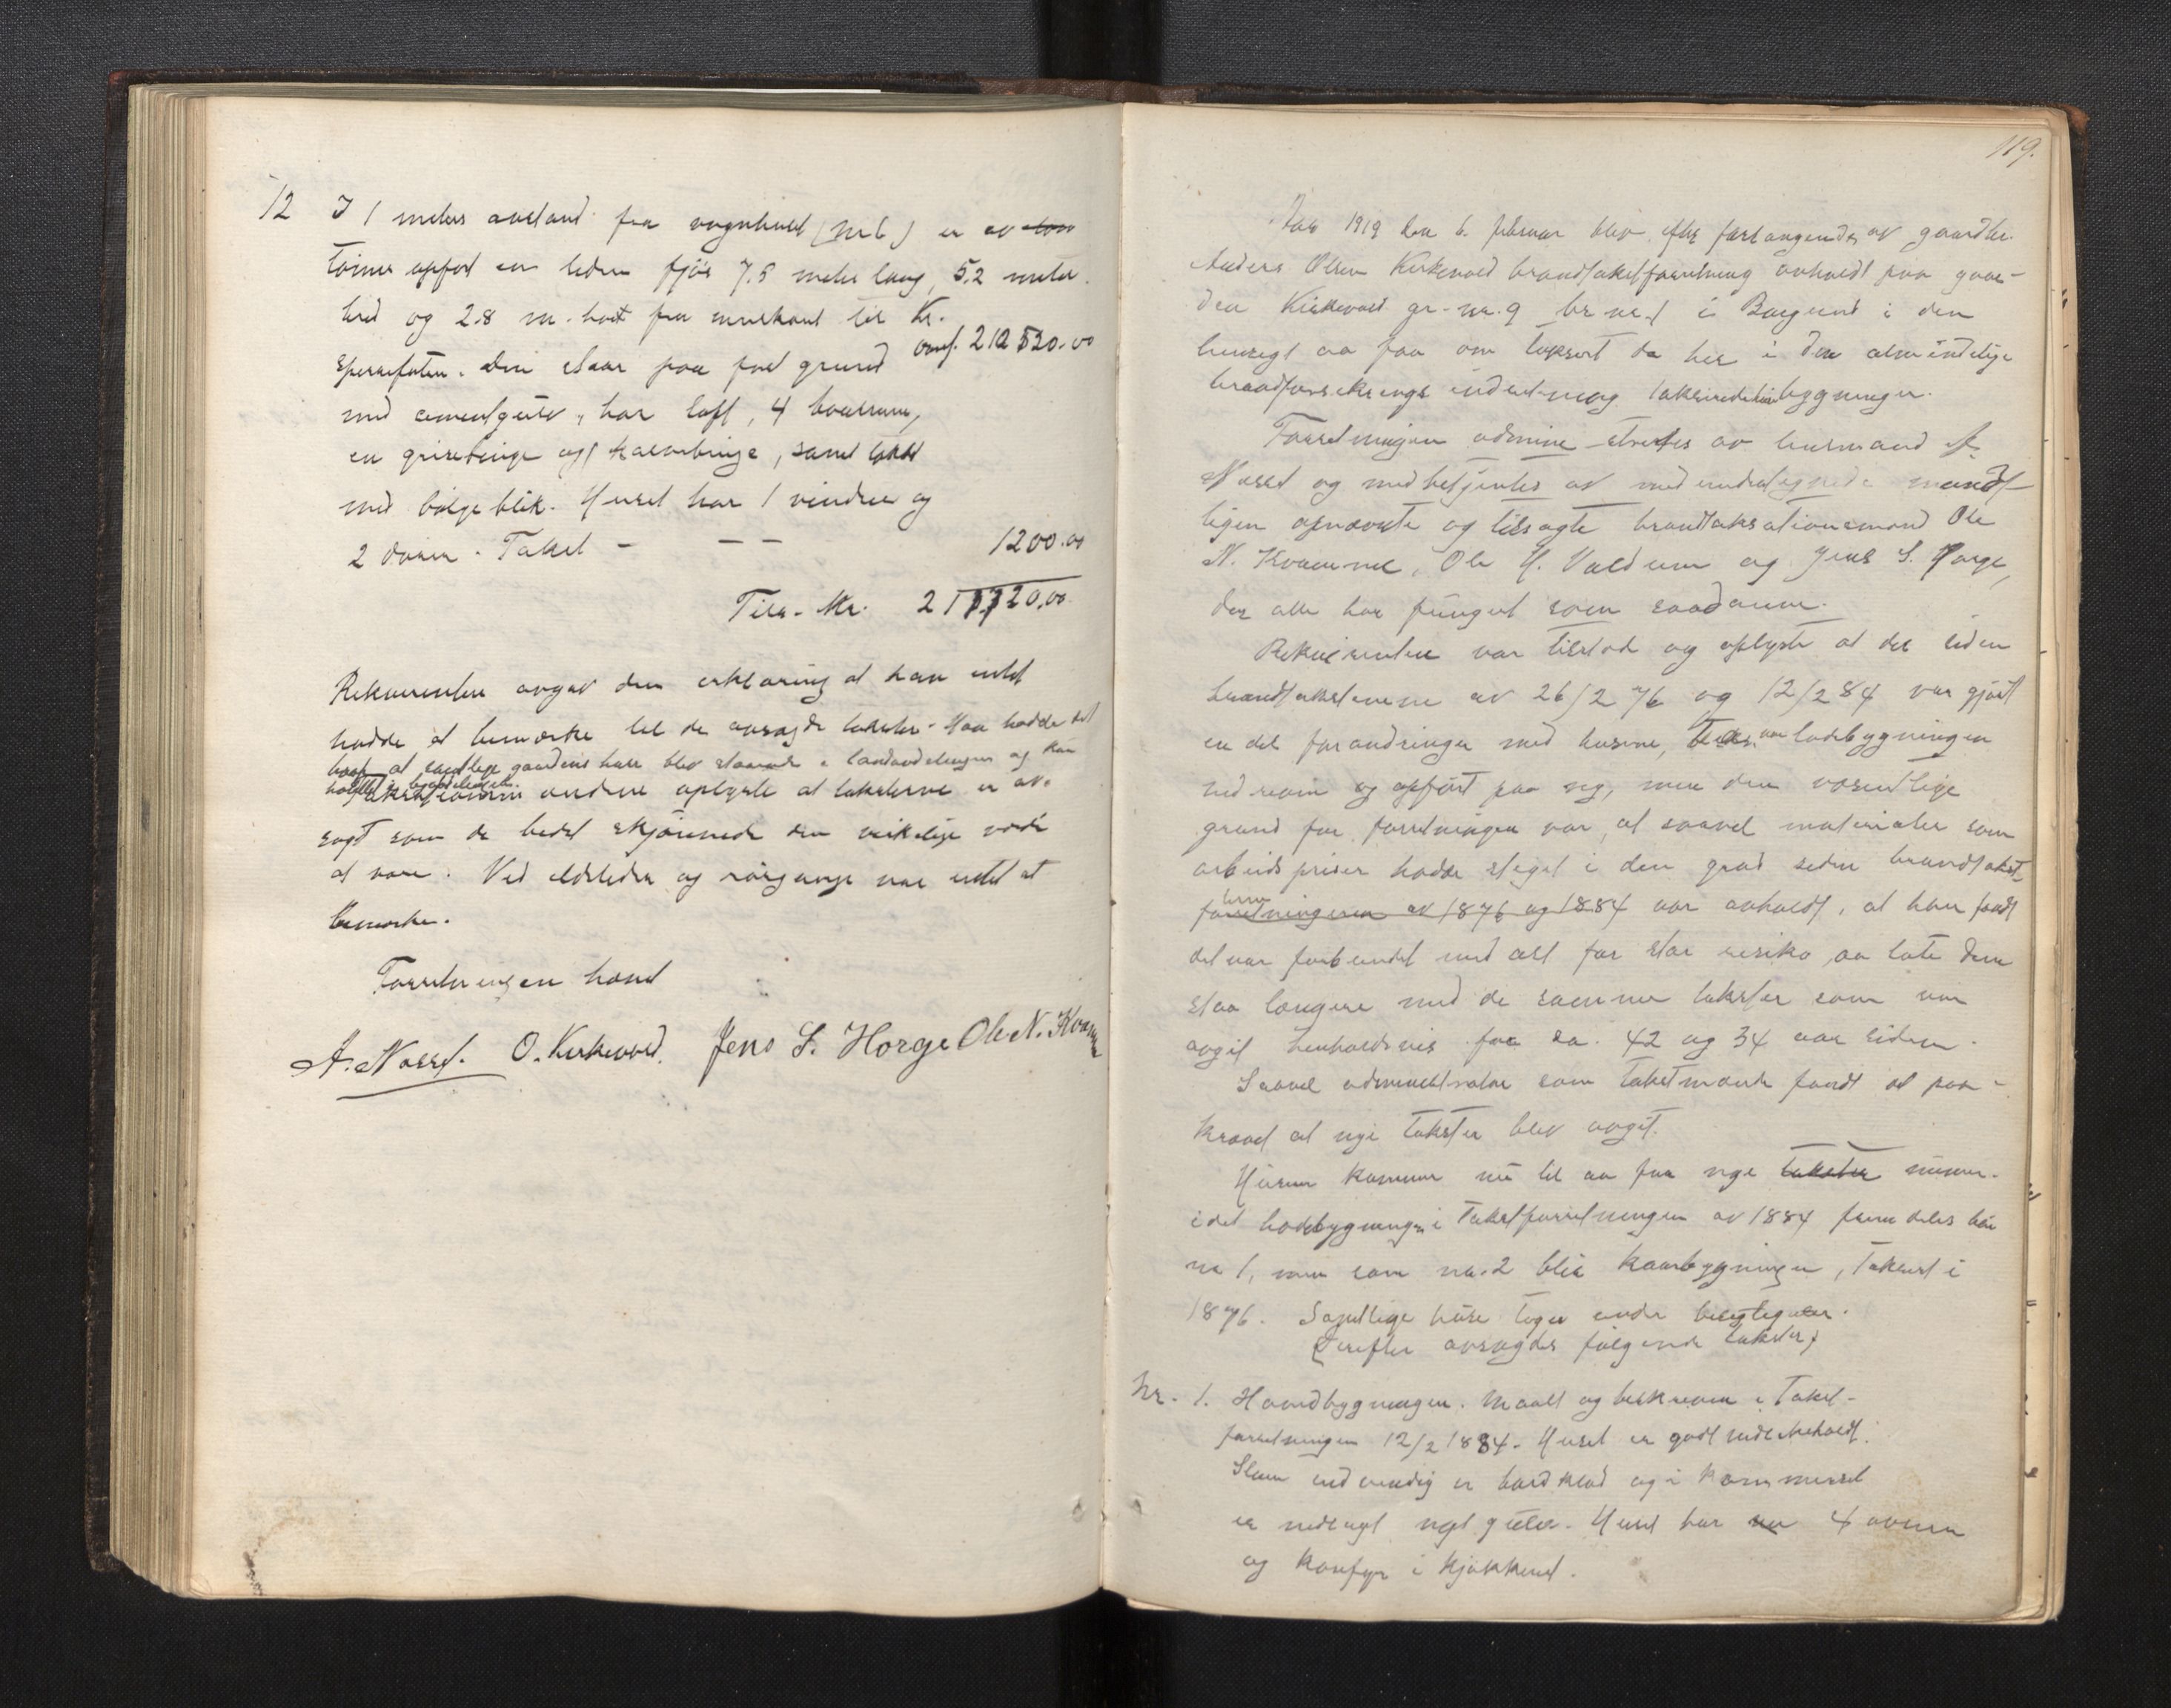 12 I 1 meters avstand fra vognhuset (nr 6) er av
tømmer opført en liden fjøs 7.5 meter lang, 5.2 meter
bred og 2.8 m. høit fra murkant til Kr.
sperrefoten. Den staar paa fast grund ovf. 212520.00
med cementgulv, har loft, 4 baasrum,
en grisebinge og 1 kalvebinge, samt tækt
med bølgeblik. Huset har 1 vindue og
2 dører. Takst - - - 1200.00
Tils. Kr. 213720.00
Rekvirenten avgav den erklæring at han intet
hadde at bemerke til de avsagte takster. Han hadde det
haap at samtlige gaardens huse blev staaende i landavdelingen og ikke
i byavdelingen.
Takstmændene oplyste at taksterne er av-
sagt som de bedst skjønnede den virkelige værdi
at være. Ved ildsteder og rørgange var intet at
bemerke.
Forretningen hævet
A. Næss. O. Kirkevold. Jens S. Horge Ole N. Kvamme
119.
Aar 1919 den 6. februar blev efter forlangende av gaardbr.
Anders Olsen Kirkevold brandtakstforretning avholdt paa gaar-
den Kirkevold gr.-nr. 9 br. nr. 1 i Borgund i den
hensigt aa faa om taksert de her i den almindelige
brandforsikrings indretning takserte bygninger.
Forretningen admini-streres av lensmand A.
Næss og medbetjentes av medundertegnede mundt-
ligen opnævnte og tilsagte brandtaksationsmænd Ole
N. Kvamme, Ole H. Voldum og Jens S. Horge,
der alle har fungert som saadanne.
Rekvirenten var tilstede og oplyste at der siden
brandtaksterne av 26/2 76 og 12/2 84 var gjort
en del forandringer med husene, dels var ladebygningen
nedreven og opført paa ny, men den væsentlige
grund for forretningen var, at saavel materialer som
arbeidspriser hadde steget i den grad siden brandtakst-
forretningerne av 1876 og 1884 var avholdt, at han fandt
det var forbundet med alt for stor risiko aa late dem
staa længere med de samme takster som var
avgit henholdsvis for ca. 42 og 34 aar siden.
Saavel administrator som takstmænd fandt det paa-
krævet at nye takster blev avgit.
Husene kommer nu til aa faa nye takster numer.
idet hovedbygningen i takstforretningen av 1884 fremdeles blir
nr 1, men som nr. 2 blir kaarbygningen, taksert i
1876. Samtlige huse toges under besigtigelse.
Derefter avsagdes følgende takster:
Nr. 1. Hovedbygningen. Maalt og beskreven i takst-
forretningen 12/2 1884. Huset er godt vedlikeholdt.
Stuen indvendig er bordklæd og i kammerset
er nedlagt nyt gulv. Huset har 4 ovner
og komfyr i kjøkkenet.